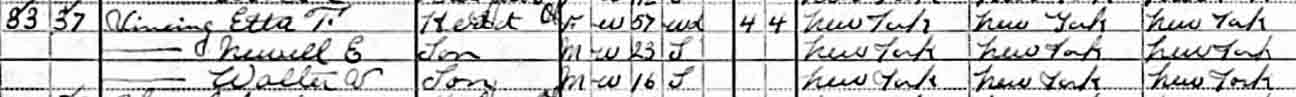 83 37 Vincing Etta T. Head F W 57 Wd 4 4 New York New York New York
—— Newell E Son M W 23 S New York New York New York
—— Walter V Son M W 16 S New York New York New York